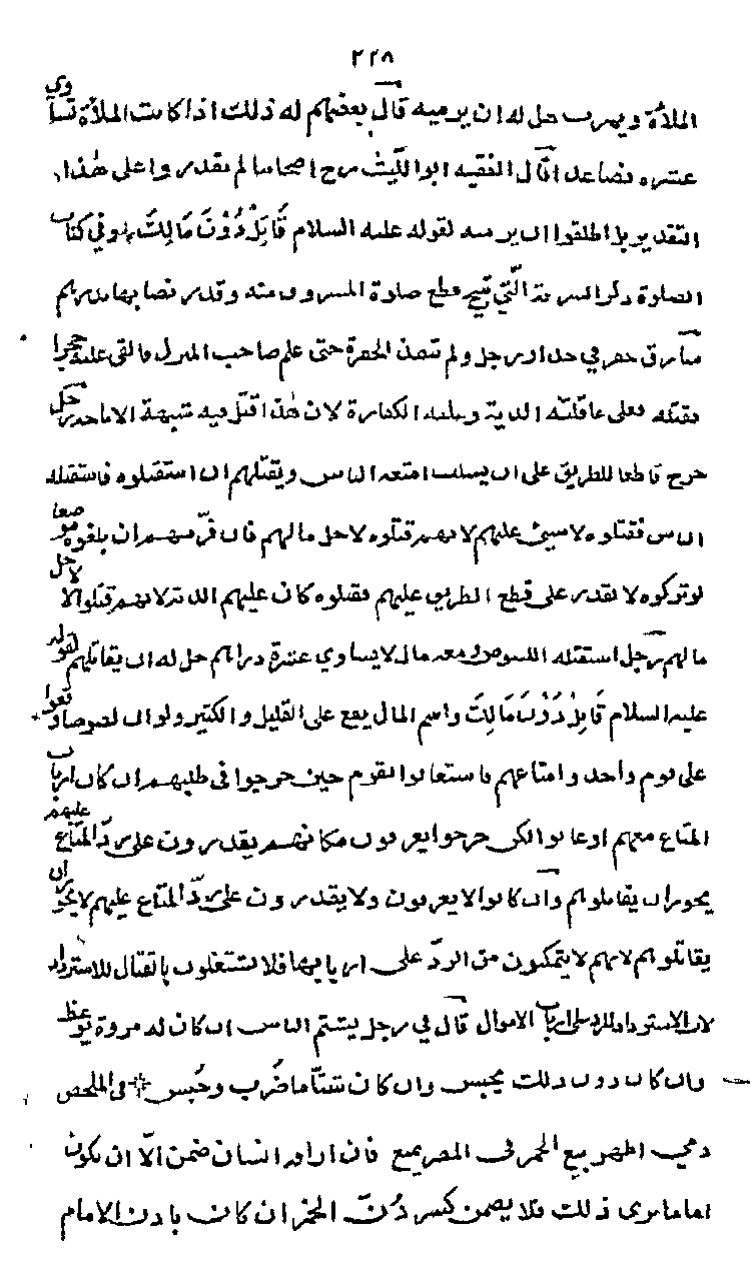 ٢٢٨
الملاءة ويهرب حل له ان يرميه قال بعضهم له ذلك اذا كانت الملاءة تساوي
عشرة فصاعدا قال الفقيه ابو الليث رح اصحابنا لم يقدروا على هذا
التقدير بل اطلقوا ان يرميه لقوله عليه السلام قَاتِلْ دُوْنَ مَالِكَ وفي كتاب
السرقة التي قطع المسروق منه وقدر نصابها بدرهم
سارق حفر في جدار رجل ولم تنفذ الحفرة حتى علم صاحب المنزل فالقى عليه حجرا
فقتله فعلى عاقلته الدية وعليه الكفارة لان هذا قتل فيه شبهة الاباحة رجل
خرج قاطعا للطريق على ان يسلب امتعة الناس ويقتلهم ان استقبلوه فاستقبله
الناس فقتلوه لا شيئ عليهم لانهم قتلوه لاجل مالهم فان فرّ منهم ان بلغوه موضعا
لو تركوه لا يقدر على قطع الطريق عليهم فقتلوه كان عليهم الدية لانهم قتلوا لا لاجل
مالهم رجل استقبله اللصوص ومعه مال لا يساوي عشرة دراهم حل له ان يقاتلهم لقوله
عليه السلام قَاتِلْ دُوْنَ مَالِكَ واسم المال يقع على القليل والكثير ولو ان لصوصا وقعوا
على قوم واخذوا متاعهم فاستعانوا بقوم حين خرجوا في طلبهم ان كان ارباب
المتاع معهم او غابوا لكن خرجوا يعرفون مكانهم يقدرون على ردّ المتاع عليهم
يجوز ان يقاتلوهم وان كانوا لا يعرفون ولا يقدرون على ردّ المتاع عليهم لا يجوز ان
يقاتلوهم لانهم لا يتمكنون من الردّ على اربابها فلا يشتغلون بالقتال للاسترداد
لان الاسترداد للرد على ارباب الاموال قال في رجل يشتم الناس ان كان له مروة يوعظ
وان كان دون ذلك يحبس وان كان شتّاما ضُرب وحُبس في الملخص
ذمي اظهر بيع الخمر في المصر يمنع فان اراد انسان ضمن الّا ان يكون
اماما يرى ذلك فلا يضمن كسر دُنّ الخمر ان كان باذن الامام